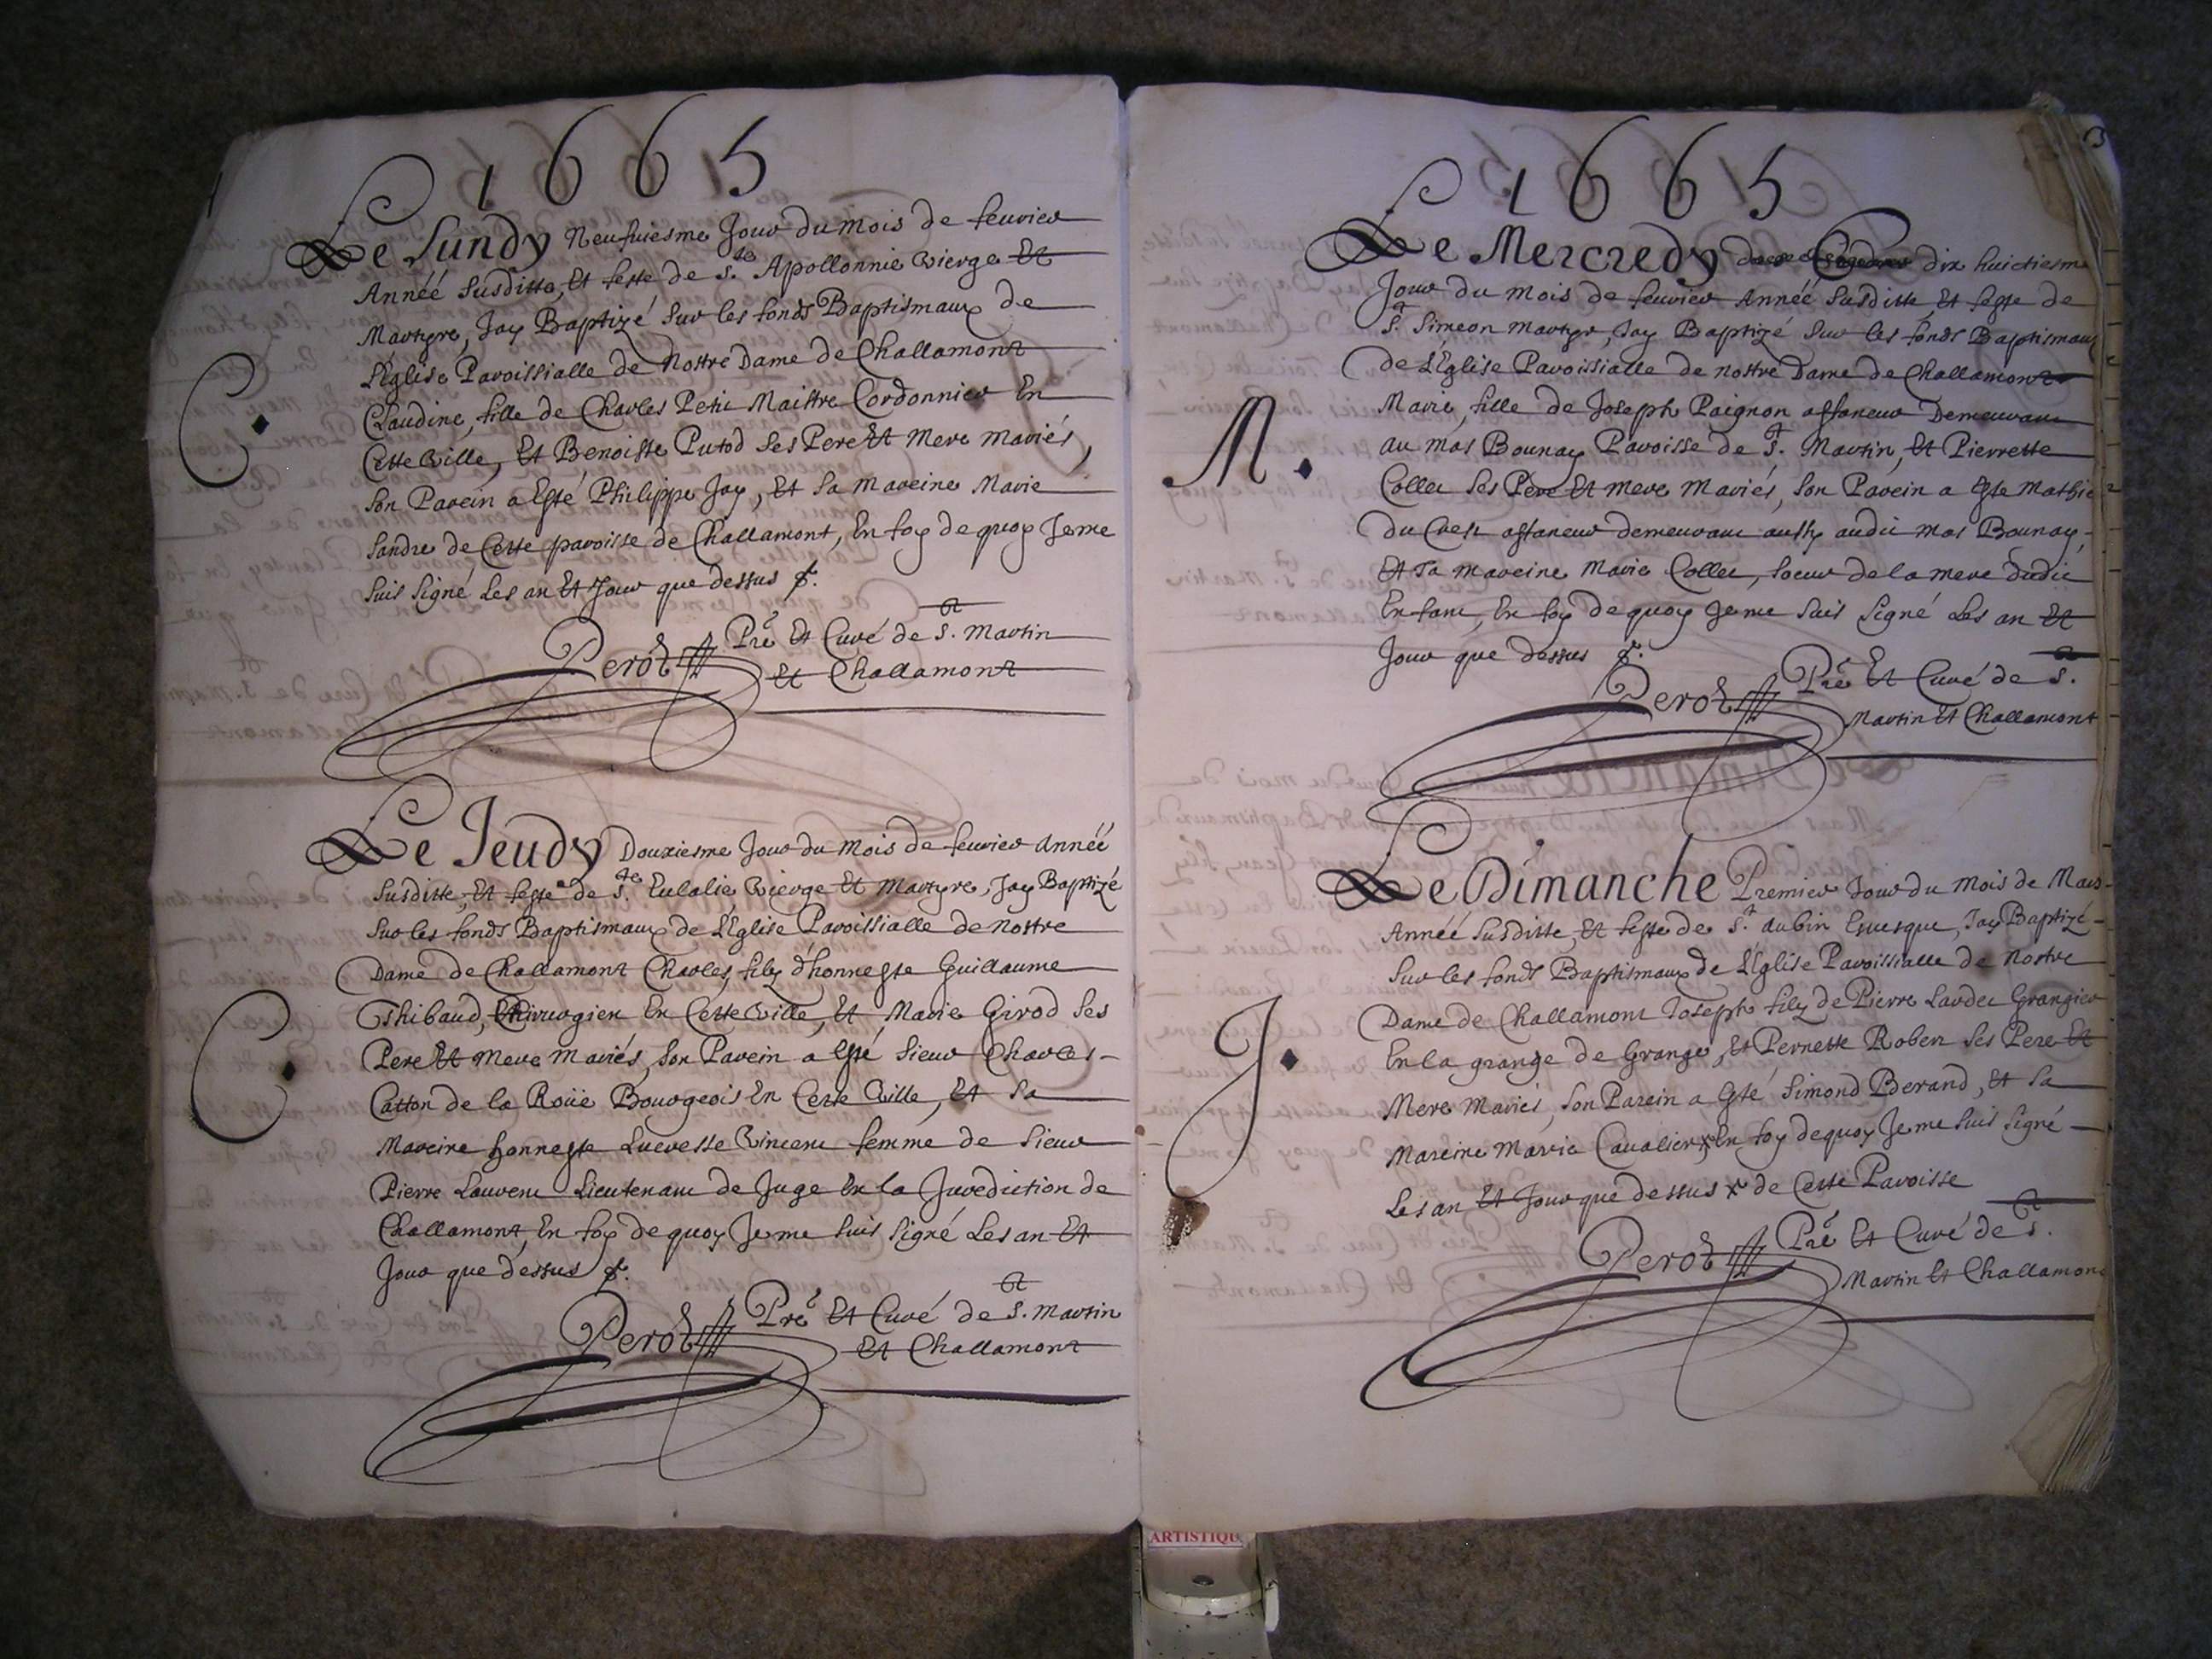 1665
Le Lundy Neufuiesme Jour du mois de feurier
Année susditte, Et feste de S.te Apollonnie vierge Et
Martyre, Jay Baptizé sur les fonds Baptismaux de
L'Eglise Paroissialle de Nostre Dame de Challamont
C.
Claudine, fille de Charles Petit Maistre Cordonnier En
Cette ville, Et Benoiste Putod ses Pere Et mere mariés,
son Parein a Esté Philippe Jay, Et sa mareine Marie
Landre de Cette paroisse de Challamont, En foy de quoy Je me
suis signé Les an Et Jour que dessus
Perot Pre Et Curé de St. Martin
Et Challamont
Le Jeudy Douziesme Jour du mois de feurier Année
susditte, Et feste de S.te Eulalie vierge Et Martyre, Jay Baptizé
sur les fonds Baptismaux de L'Eglise Paroissialle de Nostre
Dame de Challamont Charles, filz d'honneste Guillaume
C.
Thibaud, Chirurgien En Cette ville, Et Marie Girod ses
Pere Et mere mariés, son Parein a Esté sieur Charles-
Catton de la Roüe Bourgeois En Cette ville, Et sa
Mareine honneste Lucresse Vincent femme de sieur
Pierre Laurent Lieutenant de Juge En la Jurediction de
Challamont, En foy de quoy Je me suis signé Les an Et
Jour que dessus
Perot Pre Et Curé de St. Martin
Et Challamont
1665
Le Mercredy dix huictiesme
Jour du mois de feurier Année susditte Et feste de
St. Simeon martyr, Jay Baptizé sur les fonds Baptismaux
de L'Eglise Paroissialle de nostre Dame de Challamont
M.
Marie, fille de Joseph Paignon affaneur Demeurant
au mas Bounay Paroisse de St. Martin, Et Pierrette
Collet ses Pere Et mere mariés, son Parein a Este Mathie
du Crest affaneur demeurant aussy audit mas Bounay,
Et sa mareine Marie Collet, soeur de la mere dudit
Enfant, En foy de quoy Je me suis signé Les an Et
Jour que dessus
Perot Pre Et Curé de St.
Martin Et Challamont
Le Dimanche Premier Jour du mois de Mars
Année susditte, Et feste de St. Aubin Euesque, Jay Baptizé
sur les fonds Baptismaux de L'Eglise Paroissialle de nostre
J.
Dame de Challamont Joseph filz de Pierre Lardet Grangier
En la grange de Grange, Et Pernette Robert ses Pere Et
Mere Mariés, son Parein a Esté Simond Berand, Et sa
Mareine Marie Caualier, x En foy de quoy Je me suis signé
Les an Et Jour que dessus x de Cette Paroisse
Perot Pre Et Curé de St.
Martin Et Challamont
ARTISTIQU